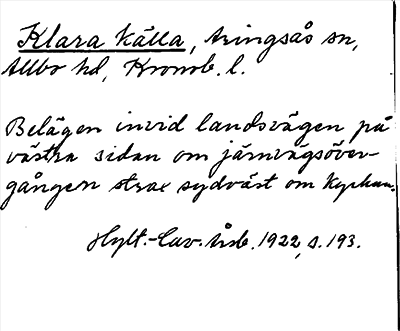 Klara källa, Aringsås sn,
Allbo hd, Kronob. l.
Belägen invid landsvägen på
västra sidan om järnvägsöver-
gången strax sydväst om kyrkan.
Hylt.-Cav. årsb. 1922, s. 193.